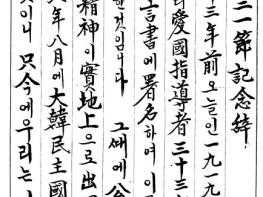 三一節記念辭
十三年前오늘인一九一九
리愛國指導者三十三
言書에署名하여이
한것입니다 그때에
精神이實地上으로出
年八月에大韓民主國
것이니 只今에우리는